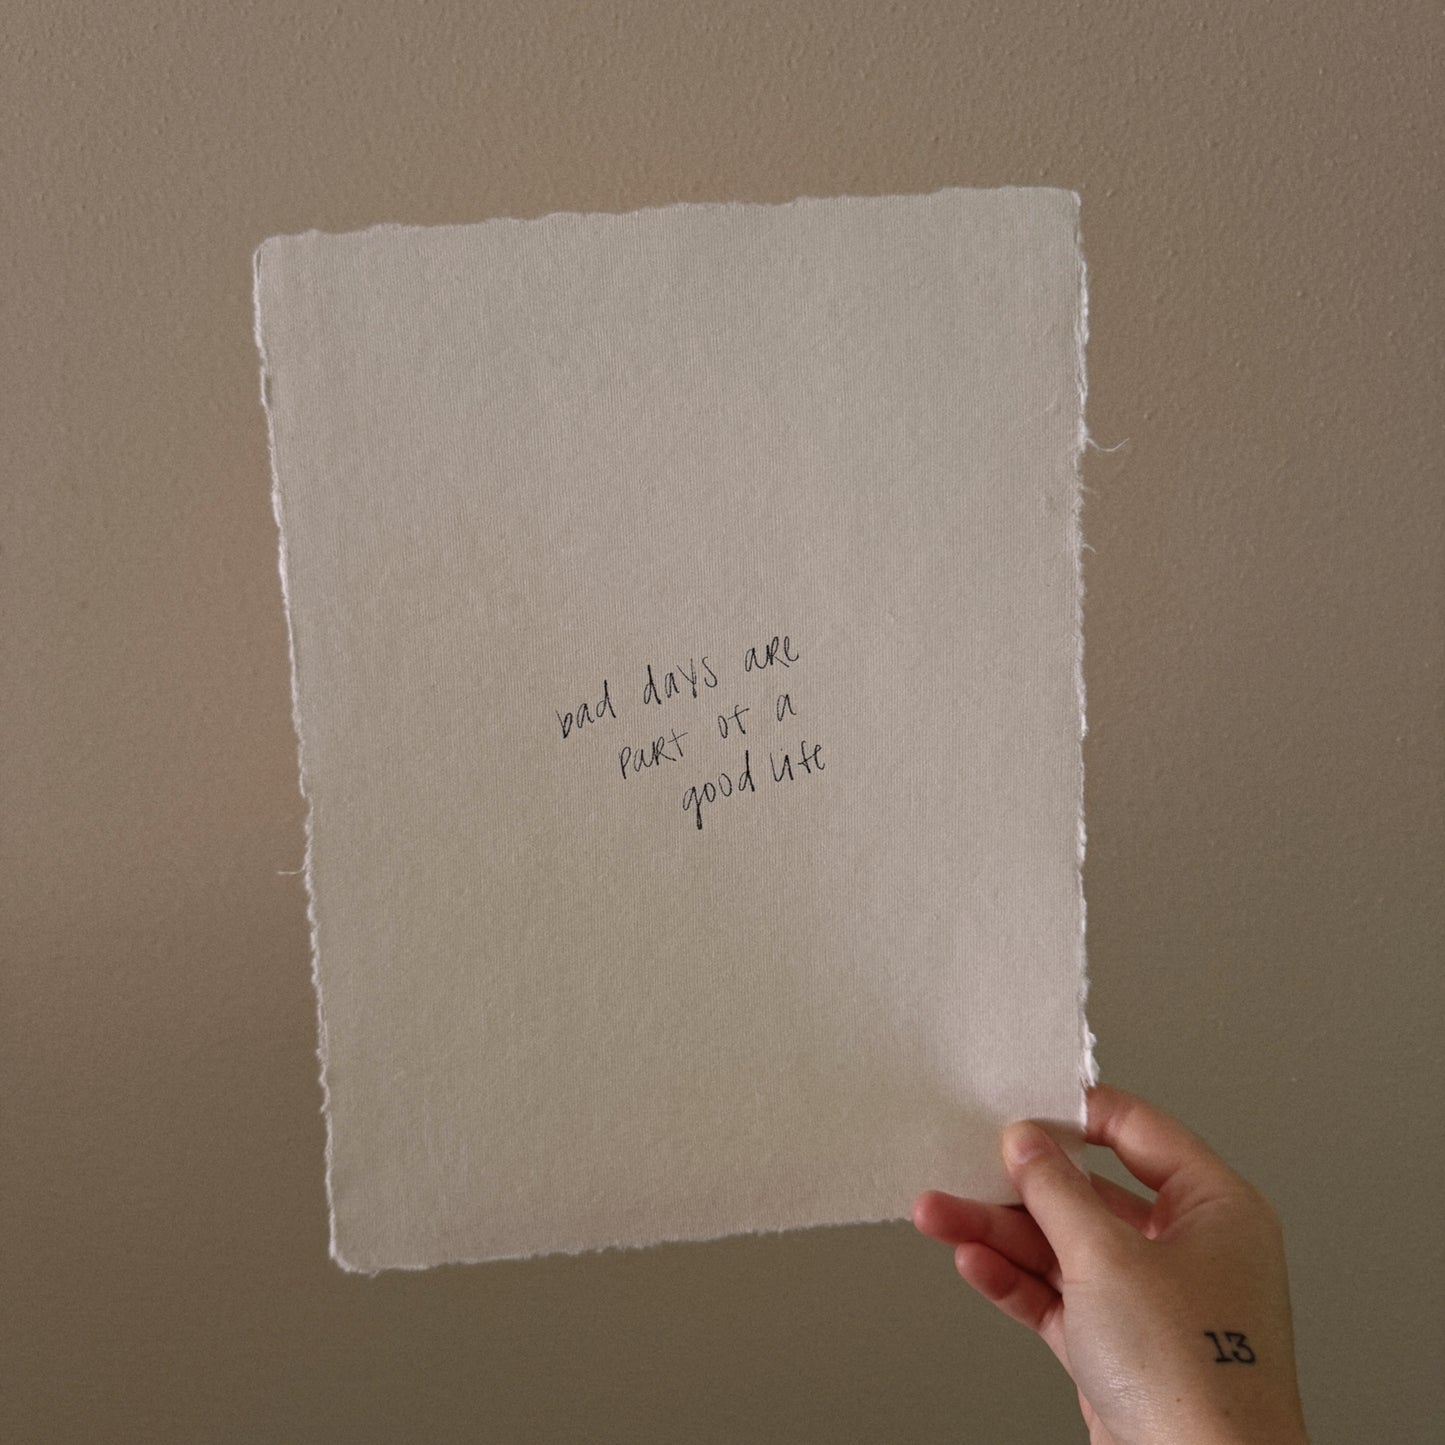 bad days are
part of a
good life
13